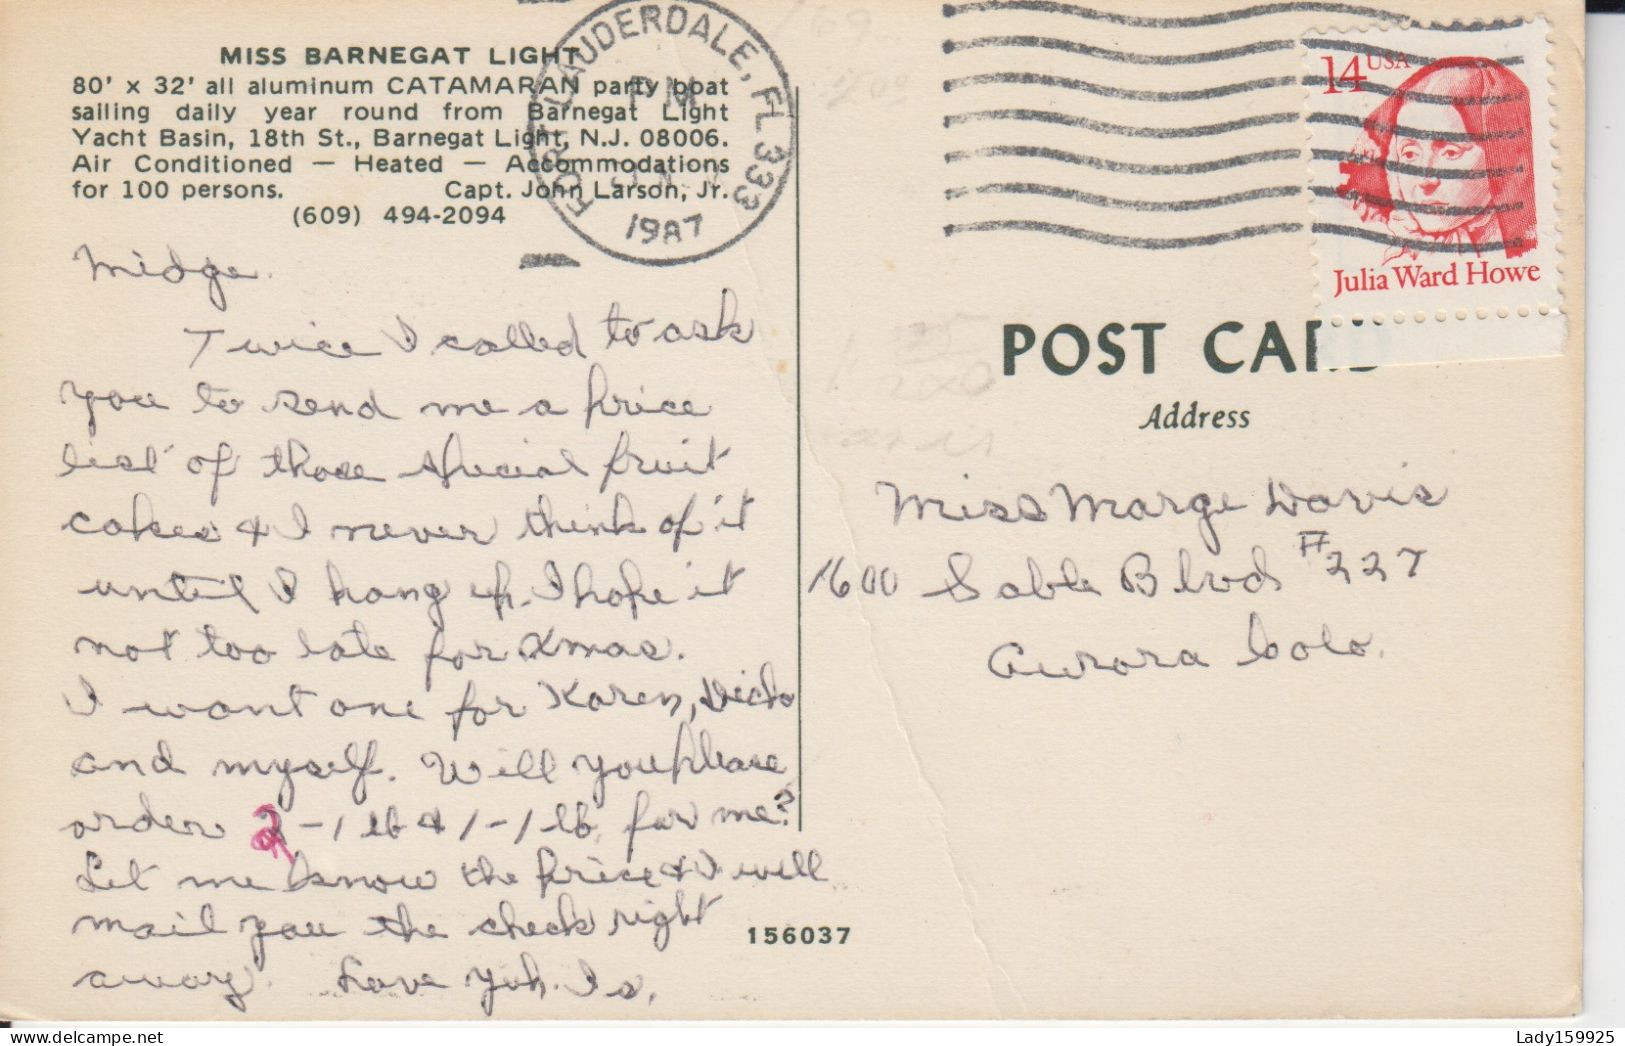 MISS BARNEGAT LIGHT
80' x 32' all aluminum CATAMARAN party boat
sailing daily year round from Barnegat Light
Yacht Basin, 18th St., Barnegat Light, N.J. 08006.
Air Conditioned — Heated — Accommodations
for 100 persons. Capt. John Larson, Jr.
(609) 494-2094
LAUDERDALE, FL 333
PM
1987
14 USA
Julia Ward Howe
Midge.
Twice I called to ask
you to send me a price
list of those special fruit
cakes & I never think of it
until I hang up. I hope it
not too late for Xmas.
I want one for Karen,
and myself. Will you please
order 2-1 lb & 1-1 lb. for me?
Let me know the price & I will
mail you the check right
away. Love
POST CARD
Address
Miss Marge Davis
1600 Sable Blvd #227
Aurora Colo.
156037
Lady159925
delcampe.net